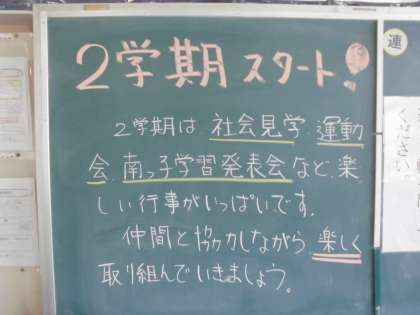 2学期スタート!
2学期は 社会見学 運動
会 南っ子学習発表会など、楽
しい行事がいっぱいです。
仲間と協力しながら 楽しく
取り組んでいきましょう。
運
ください